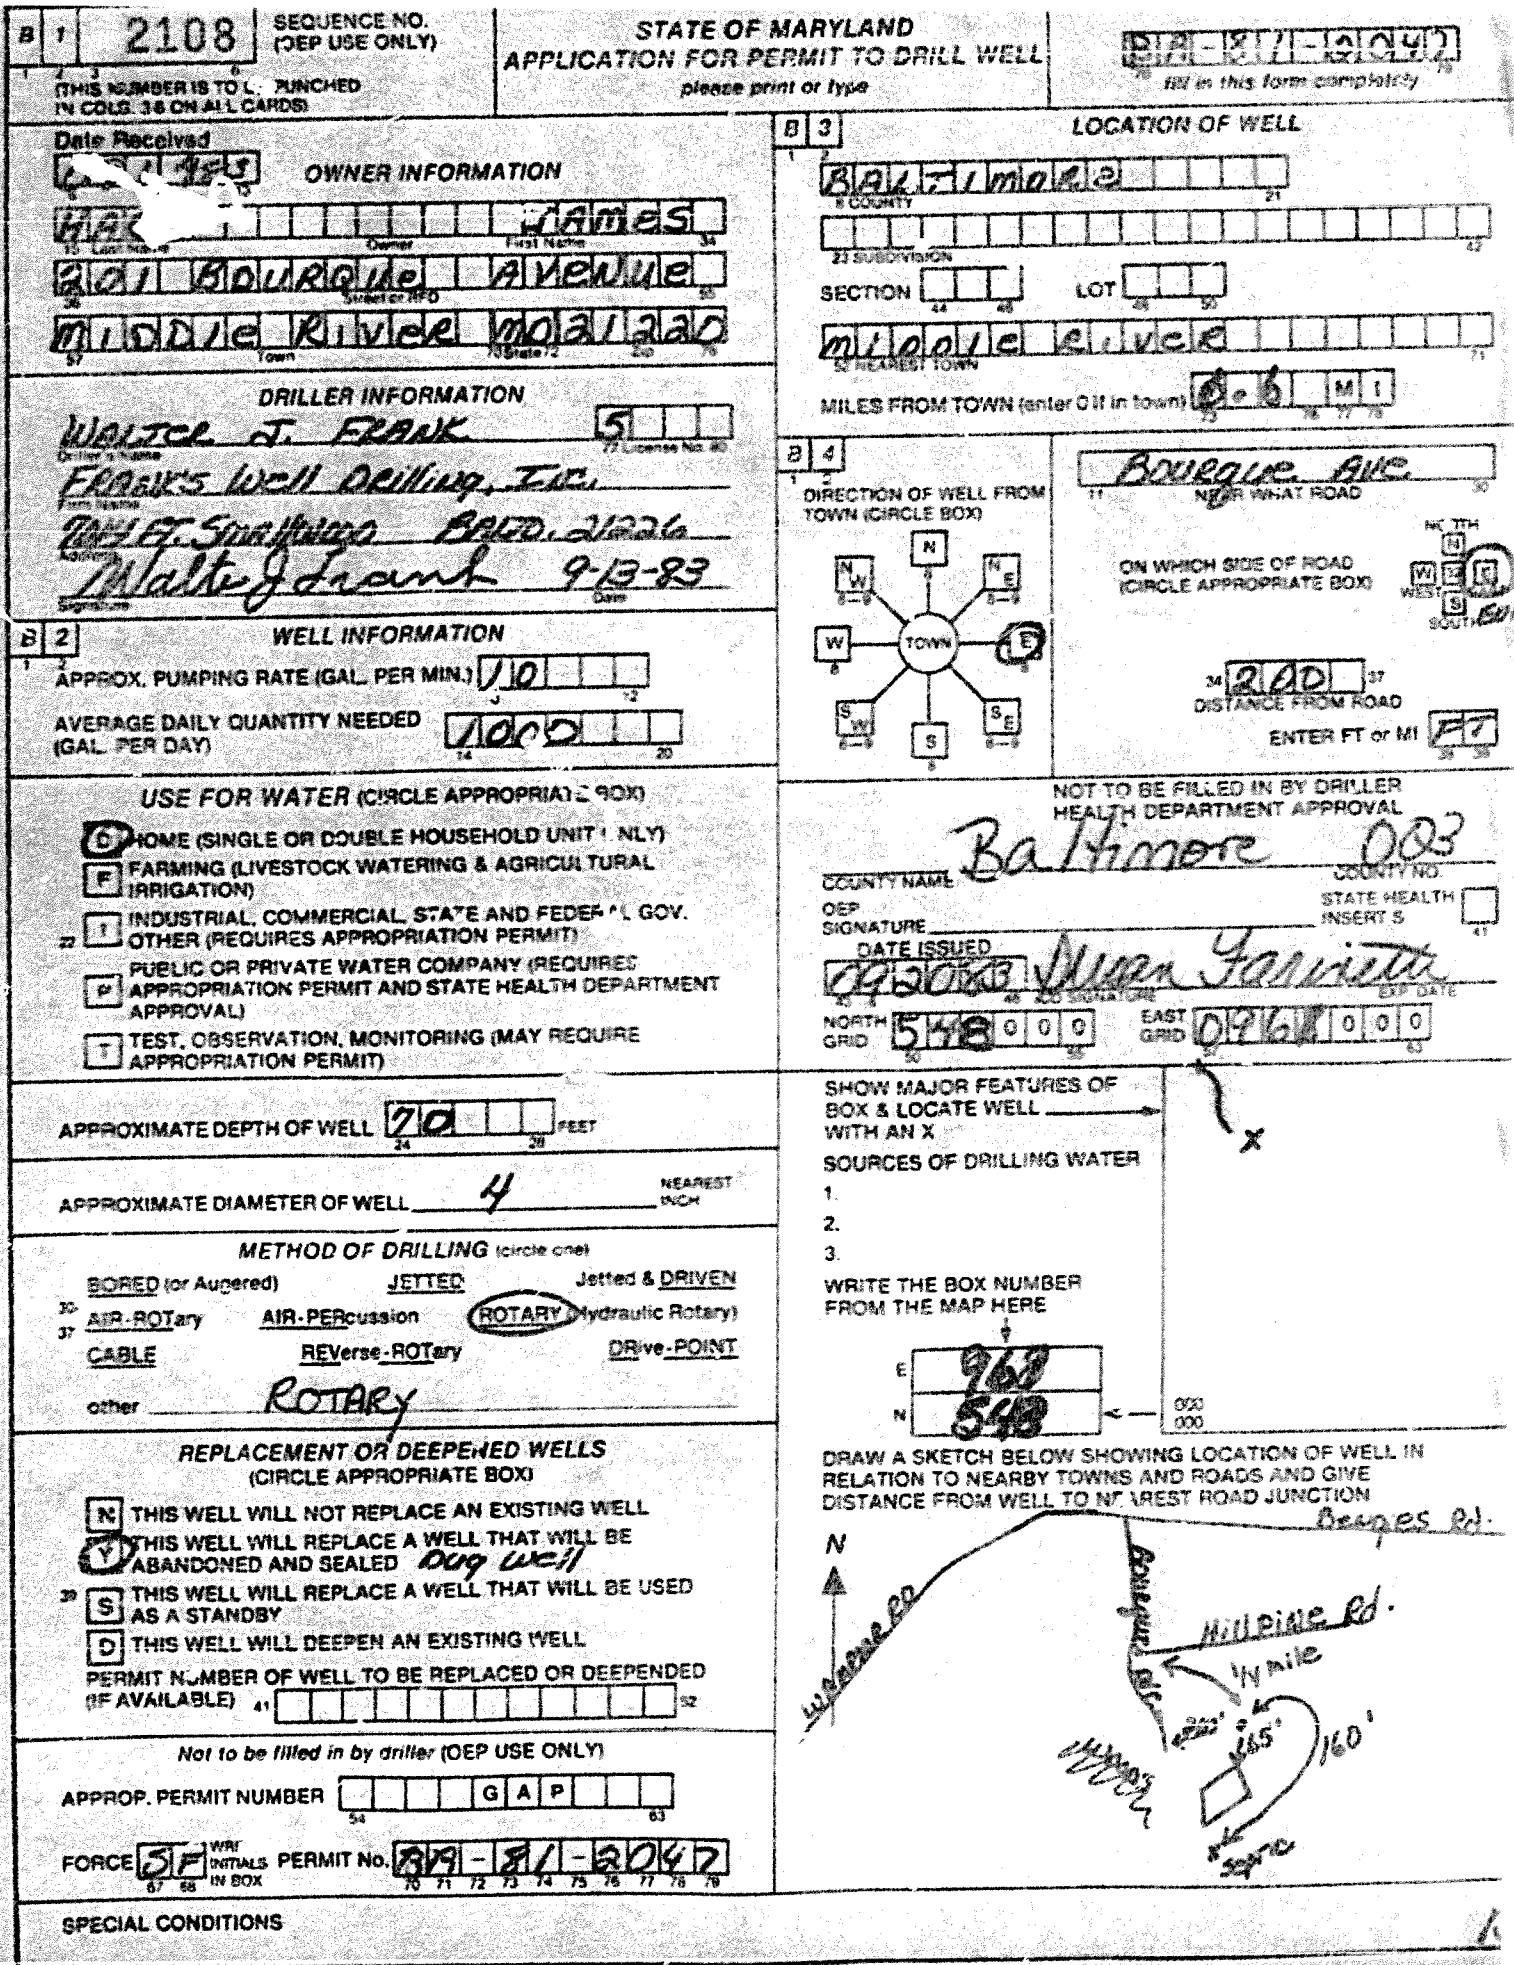 B 1 2108 SEQUENCE NO. (OEP USE ONLY)
(THIS NUMBER IS TO PUNCHED
IN COLS. 3-6 ON ALL CARDS)
STATE OF MARYLAND
APPLICATION FOR PERMIT TO DRILL WELL
please print or type
fill in this form completely
Date Received
OWNER INFORMATION
JAMES
Last Name Owner First Name
201 BOURQUE AVENUE
Street or RFD
MIDDLE RIVER MD 21220
Town State Zip
DRILLER INFORMATION
WALTER J. FRANK 5
Driller's Name License No.
FRANK'S Well Drilling, Inc.
Firm Name
Ft. Smallwood BALTO. 21226
Address
Walter J Frank 9-13-83
Signature Date
B 2 WELL INFORMATION
APPROX. PUMPING RATE (GAL. PER MIN.) 10
AVERAGE DAILY QUANTITY NEEDED
(GAL. PER DAY) 1000
USE FOR WATER (CIRCLE APPROPRIATE BOX)
D HOME (SINGLE OR DOUBLE HOUSEHOLD UNIT ONLY)
F FARMING (LIVESTOCK WATERING & AGRICULTURAL
IRRIGATION)
22 I INDUSTRIAL, COMMERCIAL, STATE AND FEDERAL GOV.
OTHER (REQUIRES APPROPRIATION PERMIT)
P PUBLIC OR PRIVATE WATER COMPANY (REQUIRES
APPROPRIATION PERMIT AND STATE HEALTH DEPARTMENT
APPROVAL)
T TEST, OBSERVATION, MONITORING (MAY REQUIRE
APPROPRIATION PERMIT)
APPROXIMATE DEPTH OF WELL 70 FEET
24 28
APPROXIMATE DIAMETER OF WELL 4 NEAREST INCH
METHOD OF DRILLING (circle one)
BORED (or Augered) JETTED Jetted & DRIVEN
30 AIR-ROTary AIR-PERcussion ROTARY (Hydraulic Rotary)
37 CABLE REVerse-ROTary DRive-POINT
other ROTARY
REPLACEMENT OR DEEPENED WELLS
(CIRCLE APPROPRIATE BOX)
N THIS WELL WILL NOT REPLACE AN EXISTING WELL
Y THIS WELL WILL REPLACE A WELL THAT WILL BE
ABANDONED AND SEALED Dug Well
39 S THIS WELL WILL REPLACE A WELL THAT WILL BE USED
AS A STANDBY
D THIS WELL WILL DEEPEN AN EXISTING WELL
PERMIT NUMBER OF WELL TO BE REPLACED OR DEEPENDED
(IF AVAILABLE) 41 52
Not to be filled in by driller (OEP USE ONLY)
APPROP. PERMIT NUMBER G A P
54 63
FORCE SF WRI INITIALS IN BOX PERMIT No. BA-81-2047
67 68 70 71 72 73 74 75 76 77 78 79
SPECIAL CONDITIONS
B 3 LOCATION OF WELL
BALTIMORE
8 COUNTY 21
23 SUBDIVISION 42
SECTION LOT
44 46 48 50
MIDDLE RIVER
52 NEAREST TOWN 71
MILES FROM TOWN (enter 0 if in town) 0.6 MI
B 4
DIRECTION OF WELL FROM
TOWN (CIRCLE BOX)
N
NW NE
W TOWN E
SW SE
S
Bourque Ave
11 NEAR WHAT ROAD 30
ON WHICH SIDE OF ROAD
(CIRCLE APPROPRIATE BOX)
NORTH
N
W E
WEST
S
SOUTH
34 200 37
DISTANCE FROM ROAD
ENTER FT or MI FT
NOT TO BE FILLED IN BY DRILLER
HEALTH DEPARTMENT APPROVAL
Baltimore 003
COUNTY NAME COUNTY NO.
OEP
SIGNATURE
STATE HEALTH
INSERT S 41
DATE ISSUED
092083
SIGNATURE EXP DATE
NORTH GRID 548000
EAST GRID 0968000
SHOW MAJOR FEATURES OF
BOX & LOCATE WELL
WITH AN X
X
SOURCES OF DRILLING WATER
1.
2.
3.
WRITE THE BOX NUMBER
FROM THE MAP HERE
E 968
N 548
000
000
DRAW A SKETCH BELOW SHOWING LOCATION OF WELL IN
RELATION TO NEARBY TOWNS AND ROADS AND GIVE
DISTANCE FROM WELL TO NEAREST ROAD JUNCTION
N
Bourque
Hill Pine Rd.
1/4 mile
200'
65'
160'
Septic